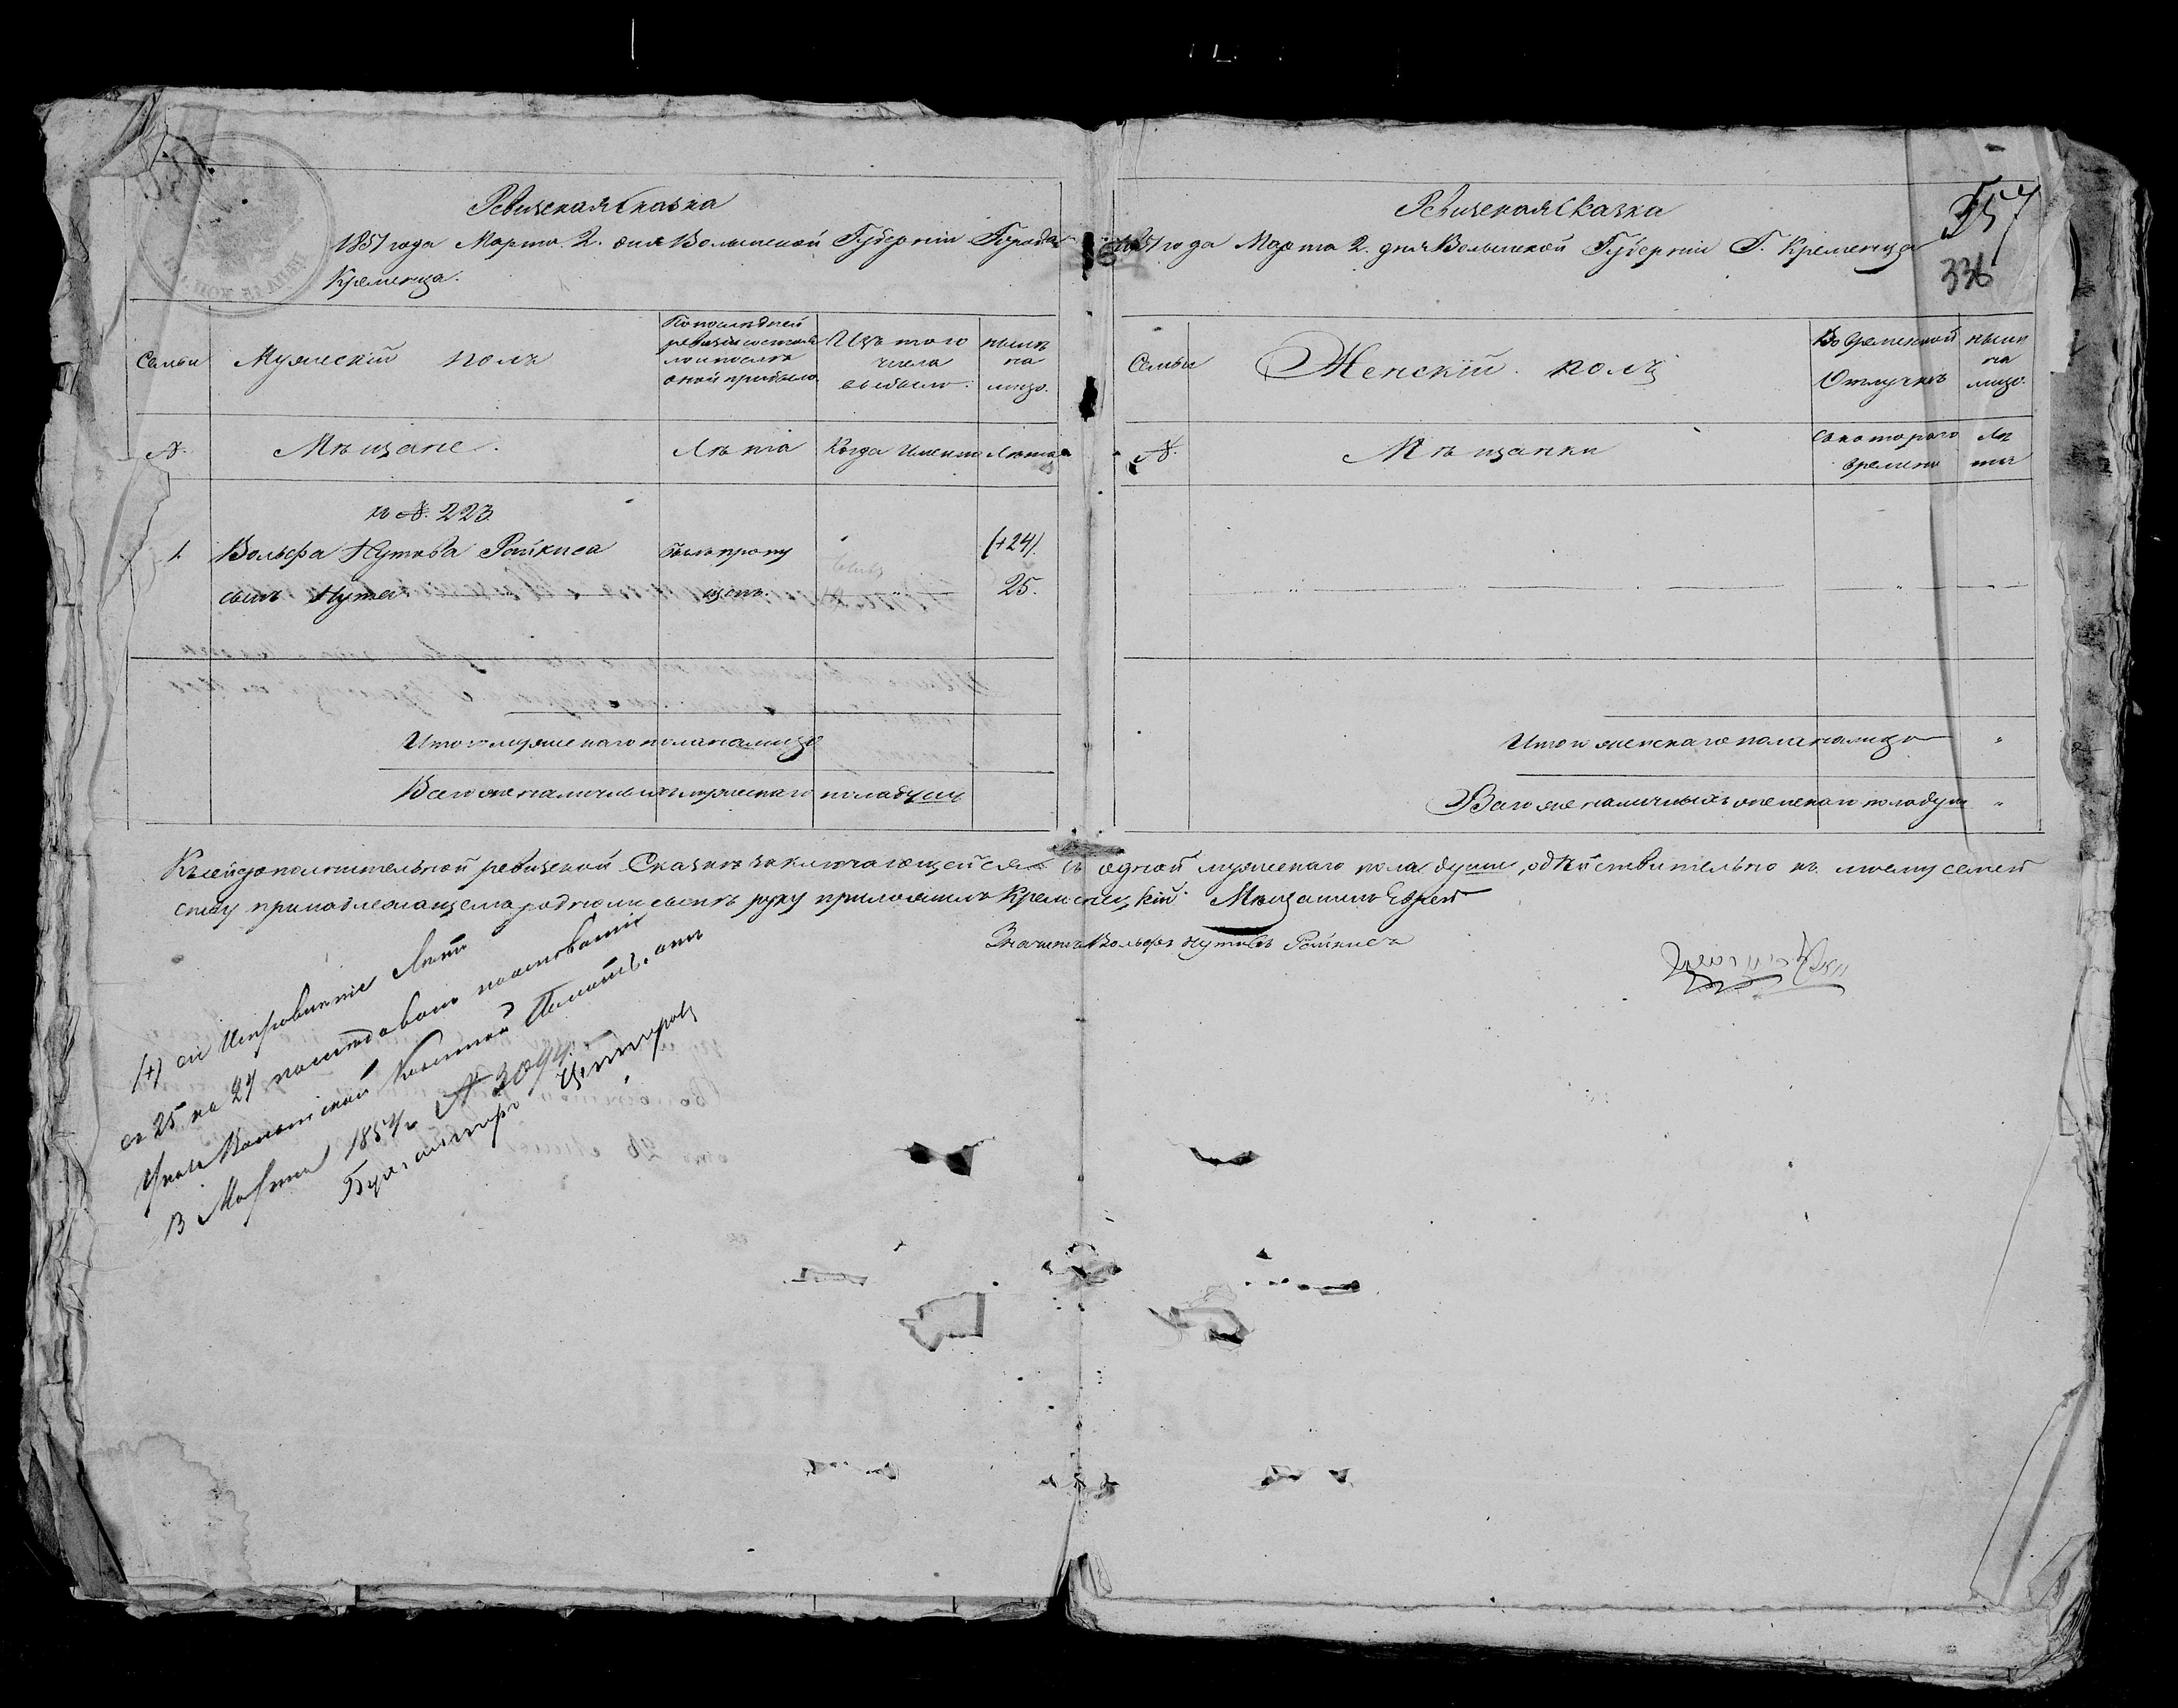 Ревизская Сказка
1851 года Марта 2. дня Волынской Губерніи Города
Кременца.
Семьи
Мужескій полъ
По последней
ревизіи состоя
ло и после
оной прибыло
Изъ того
числа
выбыло.
ныне
на
лицо.
№.
Мѣщане.
Лѣта
Когда именно
Лѣта
къ №. 223.
1.
Вольфа Нутова Ройкиса
былъ пропу
(+24).
сынъ Нута
щенъ.
"
25.
Итого мужескаго пола на лицо
Всего же наличныхъ мужескаго пола душъ
Ревизская Сказка
1851 года Марта 2. дня Волынской Губерніи Г. Кременца
357
336
Семьи
Женскій полъ
Во временной
Отлучкѣ
ныне
на
лицо.
№.
Мѣщанки
Съ котораго
времени
Лѣ
та
" " "
Итого женскаго пола на лицо "
Всего же наличныхъ женскаго пола душъ "
Къ сей дополнительной ревизской Сказкѣ заключающейся въ одной мужескаго пола душе, действительно къ моему семей
ству принадлежащема родному сынѣ руку приложилъ Кременецкій Мѣщанинъ Еврей
Вольфъ Нутовъ Ройкисъ
(+) сіе Исправленіе Летъ
съ 25 на 24 последовало на основаніи
Указа Волынской Казенной Палаты, отъ
13 Марта 1854 г. № 3094.
Бургомистръ